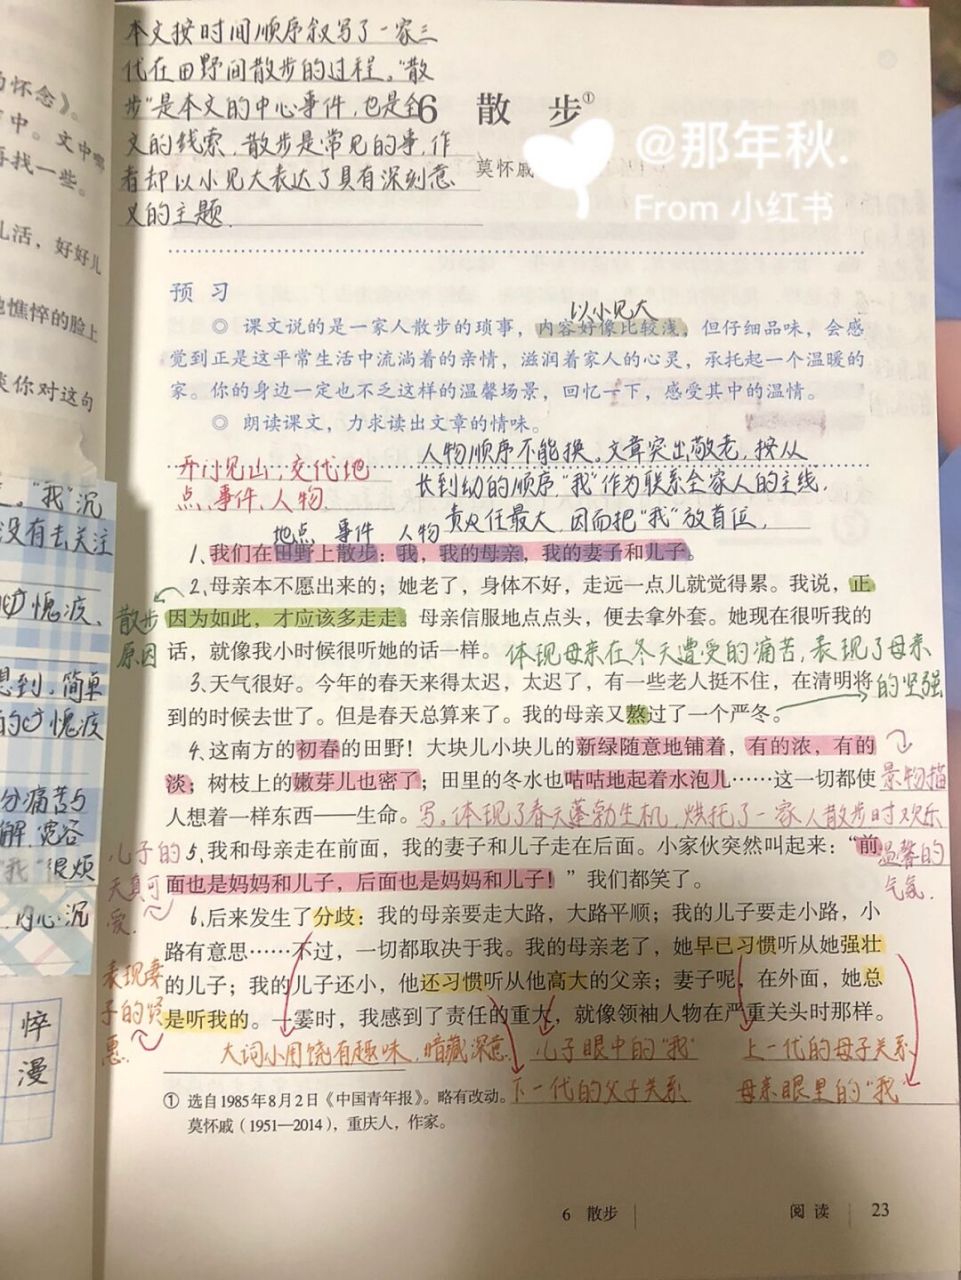 本文按时间顺序叙写了一家三
代在田野间散步的过程。“散
步”是本文的中心事件,也是全
文的线索,散步是常见的事,作
者却以小见大表达了具有深刻意
义的主题.
6 散步①
莫怀戚
@那年秋.
From 小红书
怀念》。
中。文中哪
再找一些。
儿活,好好儿
她憔悴的脸上
谈你对这句
预习
以小见大
◎ 课文说的是一家人散步的琐事,内容好像比较浅,但仔细品味,会感
觉到正是这平常生活中流淌着的亲情,滋润着家人的心灵,承托起一个温暖的
家。你的身边一定也不乏这样的温馨场景,回忆一下,感受其中的温情。
◎ 朗读课文,力求读出文章的情味。
开门见山,交代地
点、事件、人物
人物顺序不能换。文章突出敬老,按从
长到幼的顺序,“我”作为联系全家人的主线,
责任最大,因而把“我”放首位,
地点 事件 人物
1、我们在田野上散步:我,我的母亲,我的妻子和儿子。
2、母亲本不愿出来的;她老了,身体不好,走远一点儿就觉得累。我说,正
因为如此,才应该多走走。母亲信服地点点头,便去拿外套。她现在很听我的
话,就像我小时候很听她的话一样。
散步
原因
体现母亲在冬天遭受的痛苦,表现了母亲
的坚强
3、天气很好。今年的春天来得太迟,太迟了,有一些老人挺不住,在清明将
到的时候去世了。但是春天总算来了。我的母亲又熬过了一个严冬。
4、这南方的初春的田野!大块儿小块儿的新绿随意地铺着,有的浓,有的
淡;树枝上的嫩芽儿也密了;田里的冬水也咕咕地起着水泡儿……这一切都使
人想着一样东西——生命。
景物描
写。体现了春天蓬勃生机,烘托了一家人散步时欢乐
温馨的
气氛.
5、我和母亲走在前面,我的妻子和儿子走在后面。小家伙突然叫起来:“前
面也是妈妈和儿子,后面也是妈妈和儿子!”我们都笑了。
儿子的
天真可
爱.
6、后来发生了分歧:我的母亲要走大路,大路平顺;我的儿子要走小路,小
路有意思……不过,一切都取决于我。我的母亲老了,她早已习惯听从她强壮
的儿子;我的儿子还小,他还习惯听从他高大的父亲;妻子呢,在外面,她总
是听我的。一霎时,我感到了责任的重大,就像领袖人物在严重关头时那样。
表现妻
子的贤
惠.
大词小用饶有趣味,暗藏深意.
儿子眼中的“我”
上一代的母子关系
下一代的父子关系
母亲眼里的“我
① 选自1985年8月2日《中国青年报》。略有改动。
莫怀戚(1951—2014),重庆人,作家。
6 散步
阅读
23
“我”沉
没有去关注
愧疚、
想到,简单
愧疚
分痛苦与
解,宽容
“我”很烦
内心沉
悴
漫